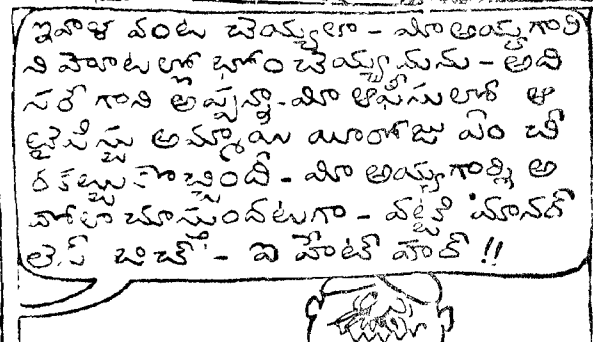 ఇవాళ వంట చెయ్యలా - మీ అయ్యగారి
ని హొటల్లో భోం చెయ్యమను - అది
సరే గాని అప్పన్నా - మీ ఆఫీసులో ఆ
టైపిస్టు అమ్మాయి యీరోజు ఏం చీ
ర కట్టుకొచ్చిందీ - మీ అయ్యగార్ని అ
హోలా చూస్తుందటగా - వట్టి మానర్
లెస్ బిచ్ - ఐ హేట్ హర్ !!